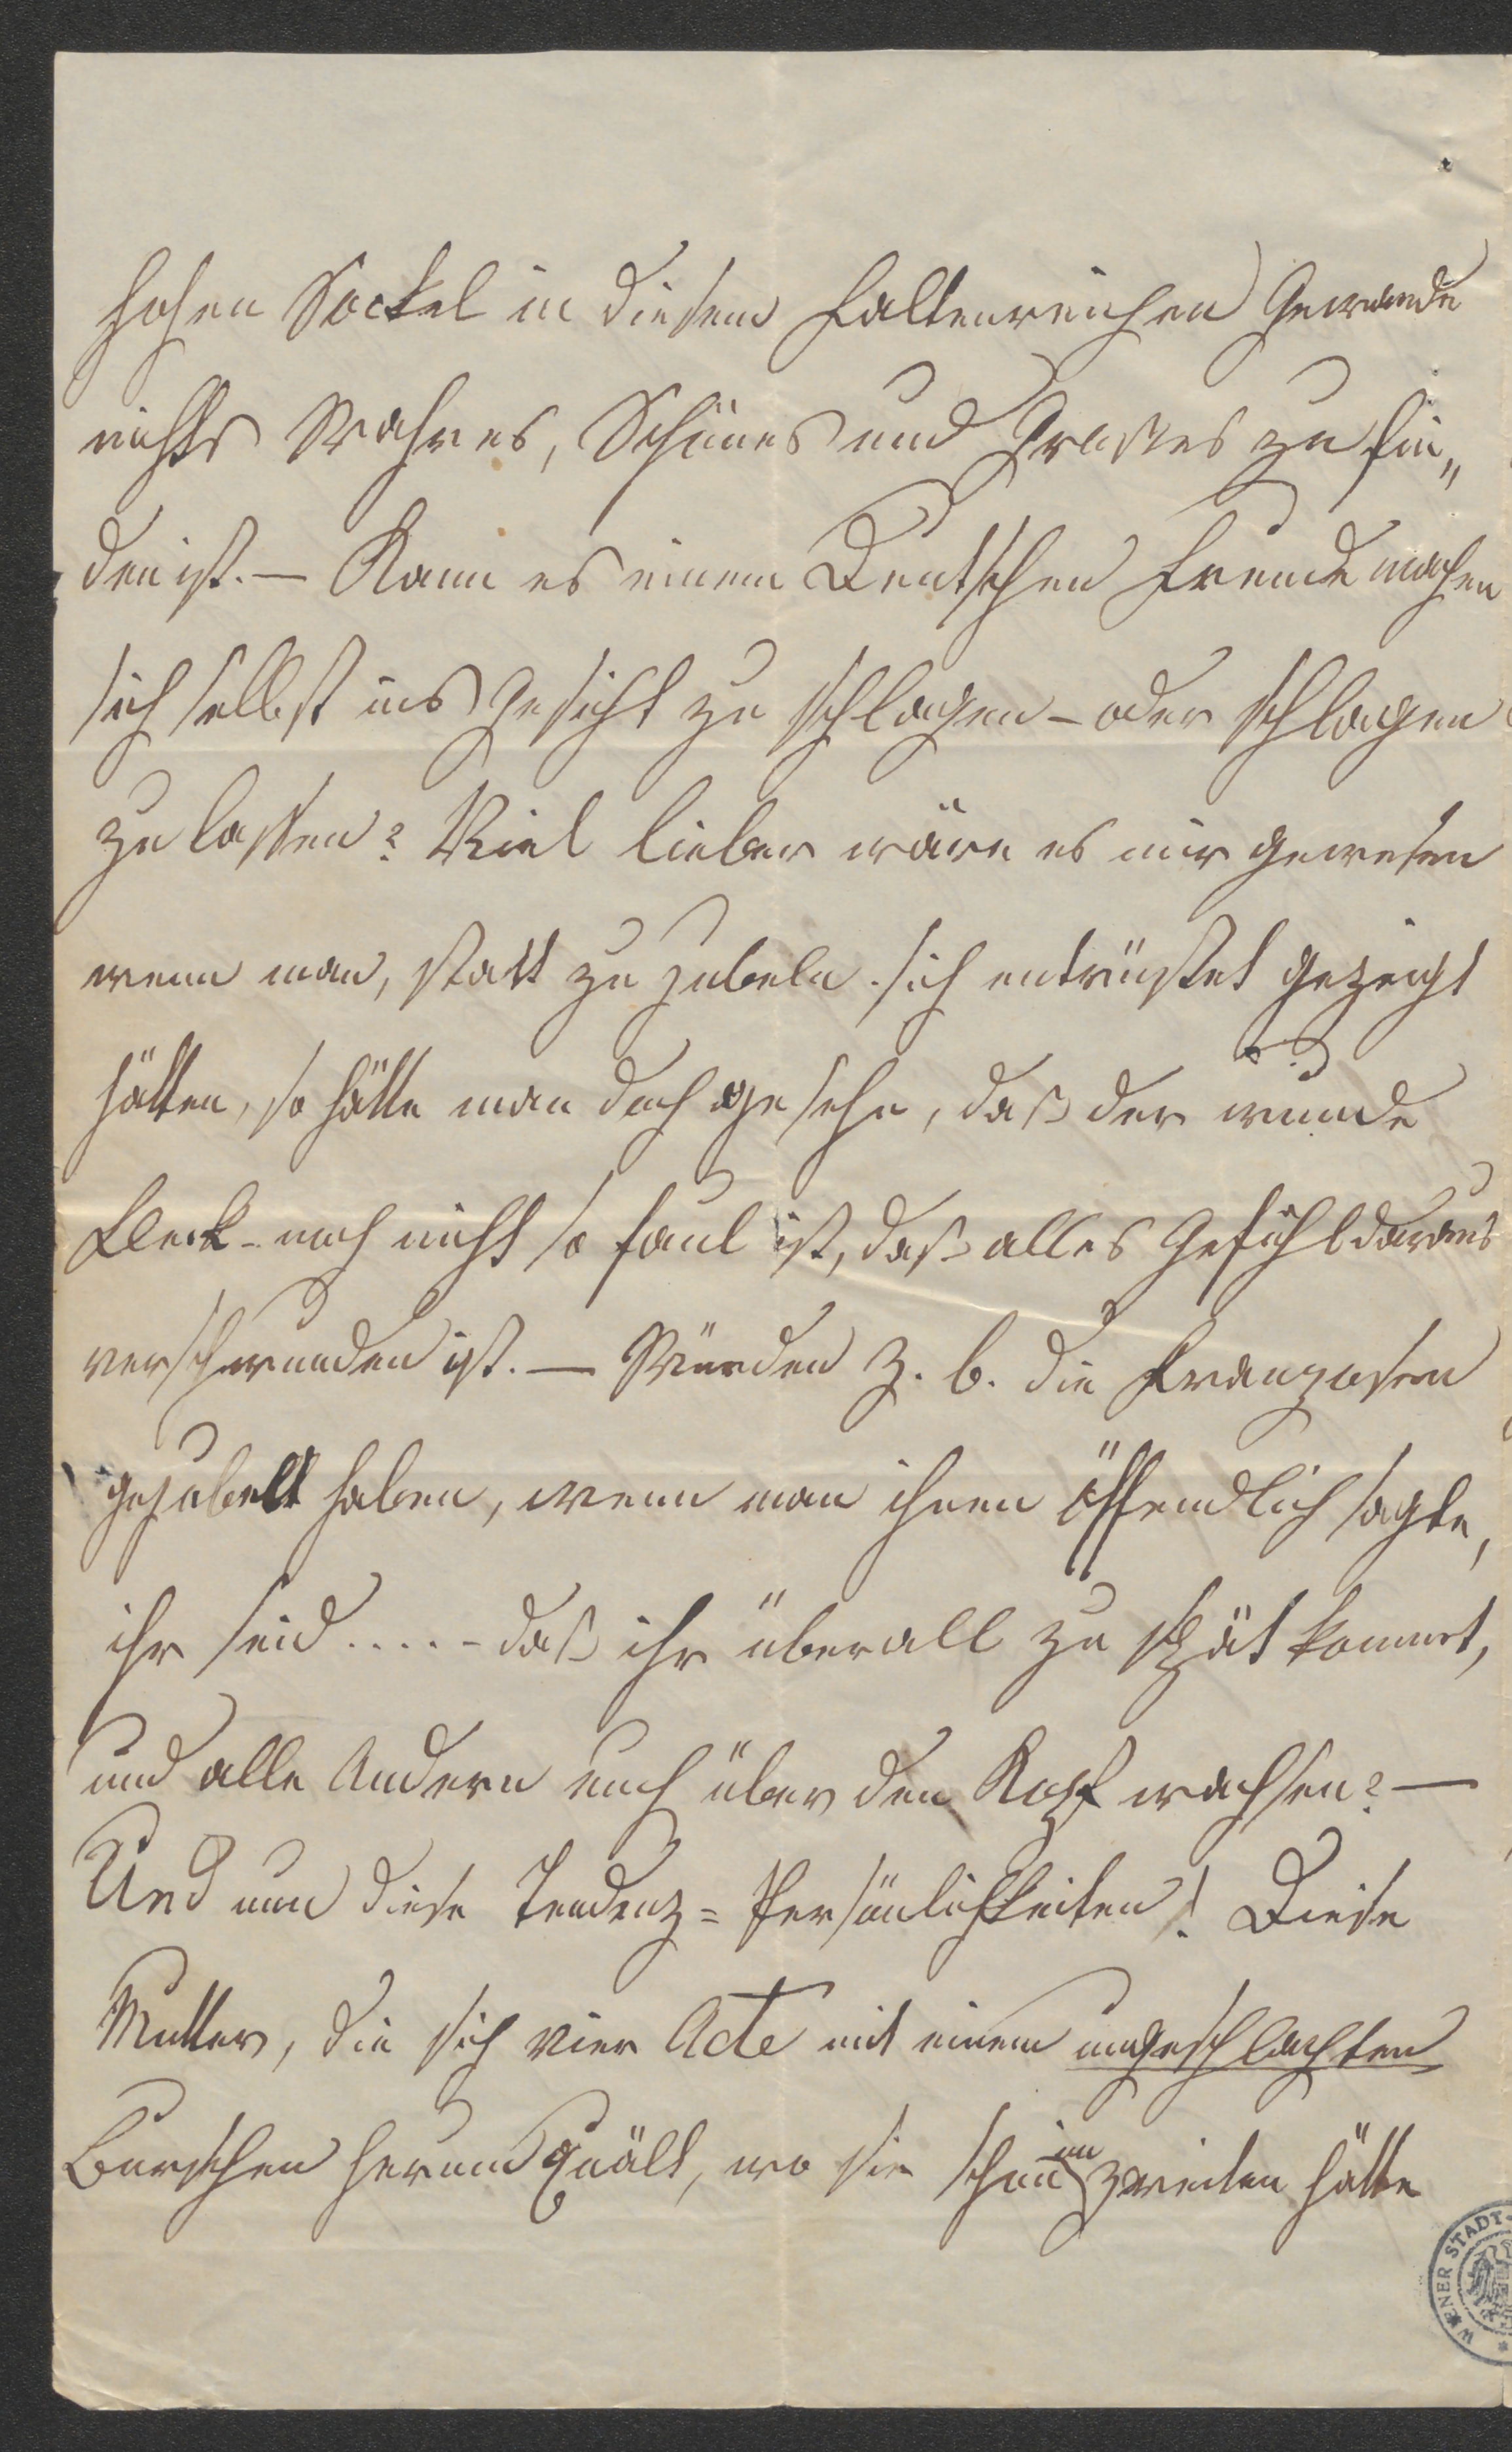 hohen Sockel in diesem faltenreichen Gewande
nichts Wahres, Schönes und Großes zu fin„
den ist. — Kann es einem Deutschen Freude machen
sich selbst ins Gesicht zu schlagen – oder schlagen
zu lassen? Viel lieber wäre es mir gewesen
wenn man, statt zu jubeln sich entrüstet gezeigt
hätten, so hätte man doch gesehn, daß der wunde
Fleck – noch nicht so faul ist, daß alles Gefühl daraus
verschwunden ist. — Würden z. b. die Franzosen
gejubelt haben, wenn man ihnen öffendlich sagte,
ihr seid ..... – daß ihr überall zu spät kommt,
und alle Andern euch über den Kopf wachsen? —
Und nun diese Tendenz=Persönlichkeiten! Diese
Mutter, die sich vier Acte mit einem ungeschlachten
Burschen herum quält, wo sie schon im zweiten hätte
WIENER STADT-